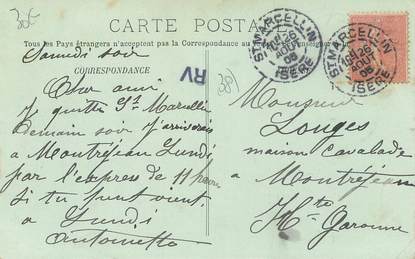 30€
CARTE POSTALE
Tous les Pays étrangers n'acceptent pas la Correspondance au
CORRESPONDANCE
Samedi soir
Cher ami
Je quitte St Marcellin
Demain soir J'arriverai
a Montréjeau Lundi
par l'express de 11 heures
Si tu peux vient
a Lundi
Antoinette
RV
38
ST MARCELLIN
26
AOUT
06
ISÈRE
ST MARCELLIN
26
AOUT
06
ISÈRE
Monsieur
Longes
maison Cavalade
a Montréjeau
Hte Garonne